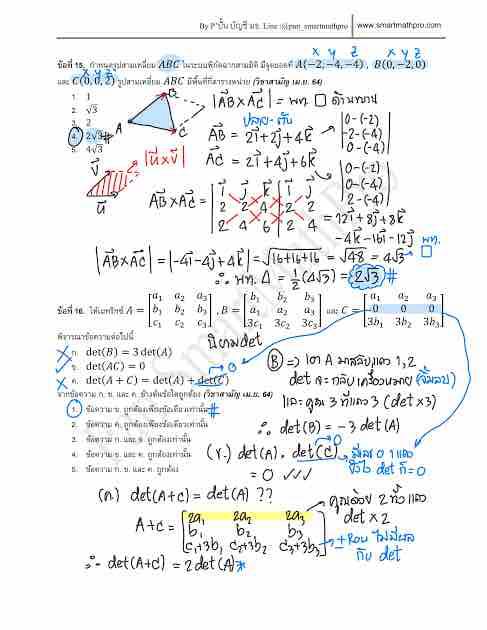 By P'ปั้น บัญชี มธ. Line :@pan_smartmathpro | www.smartmathpro.com
ข้อที่ 15. กำหนดรูปสามเหลี่ยม ABC ในระบบพิกัดฉากสามมิติ มีจุดยอดที่ A(−2,−4,−4) , B(0,−2,0)
x y z x y z
และ C(0,0,2) รูปสามเหลี่ยม ABC มีพื้นที่กี่ตารางหน่วย (วิชาสามัญ เม.ย. 64)
x y z
1. 1
2. √3
3. 2
4. 2√3
5. 4√3
A B C
|AB×AC| = พท. ▱ ด้านขนาน
ปลาย-ต้น
AB = 2i+2j+4k
0-(-2)
-2-(-4)
0-(-4)
AC = 2i+4j+6k
0-(-2)
0-(-4)
2-(-4)
|u×v|
v
u
AB×AC = | i j k | i j
2 2 4 2 2
2 4 6 2 4
= 12i+8j+8k
-4k-16i-12j
|AB×AC| = |-4i-4j+4k| = √16+16+16 = √48 = 4√3 พท. ▱
∴ พท. Δ = 1/2 (4√3) = 2√3 #
ข้อที่ 16. ให้เมทริกซ์ A = [a₁ a₂ a₃ b₁ b₂ b₃ c₁ c₂ c₃] , B = [b₁ b₂ b₃ a₁ a₂ a₃ 3c₁ 3c₂ 3c₃] และ C = [a₁ a₂ a₃ 0 0 0 3b₁ 3b₂ 3b₃]
พิจารณาข้อความต่อไปนี้
นิยาม det
ก. det(B) = 3 det(A)
ข. det(AC) = 0
ค. det(A + C) = det(A) + det(C)
0
จากข้อความ ก. ข. และ ค. ข้างต้นข้อใดถูกต้อง (วิชาสามัญ เม.ย. 64)
1. ข้อความ ข. ถูกต้องเพียงข้อเดียวเท่านั้น #
2. ข้อความ ค. ถูกต้องเพียงข้อเดียวเท่านั้น
3. ข้อความ ก. และ ข. ถูกต้องเท่านั้น
4. ข้อความ ข. และ ค. ถูกต้องเท่านั้น
5. ข้อความ ก. ข. และ ค. ถูกต้อง
B => เอา A มาสลับแถว 1,2
det จะกลับเครื่องหมาย (ขึ้นลบ)
และคูณ 3 ที่แถว 3 (det ×3)
∴ det(B) = -3 det(A)
(ข.) det(A) · det(C) 0
มีเลข 0 1 แถว
det ก็ = 0
= 0 ✓✓✓
(ค.) det(A+C) = det(A) ??
คูณด้วย 2 ทั้งแถว
det × 2
A+C = [2a₁ 2a₂ 2a₃
b₁ b₂ b₃
c₁+3b₁ c₂+3b₂ c₃+3b₃]
± Row ไม่มีผล
กับ det
∴ det(A+C) = 2det(A)
Smart Math Pro